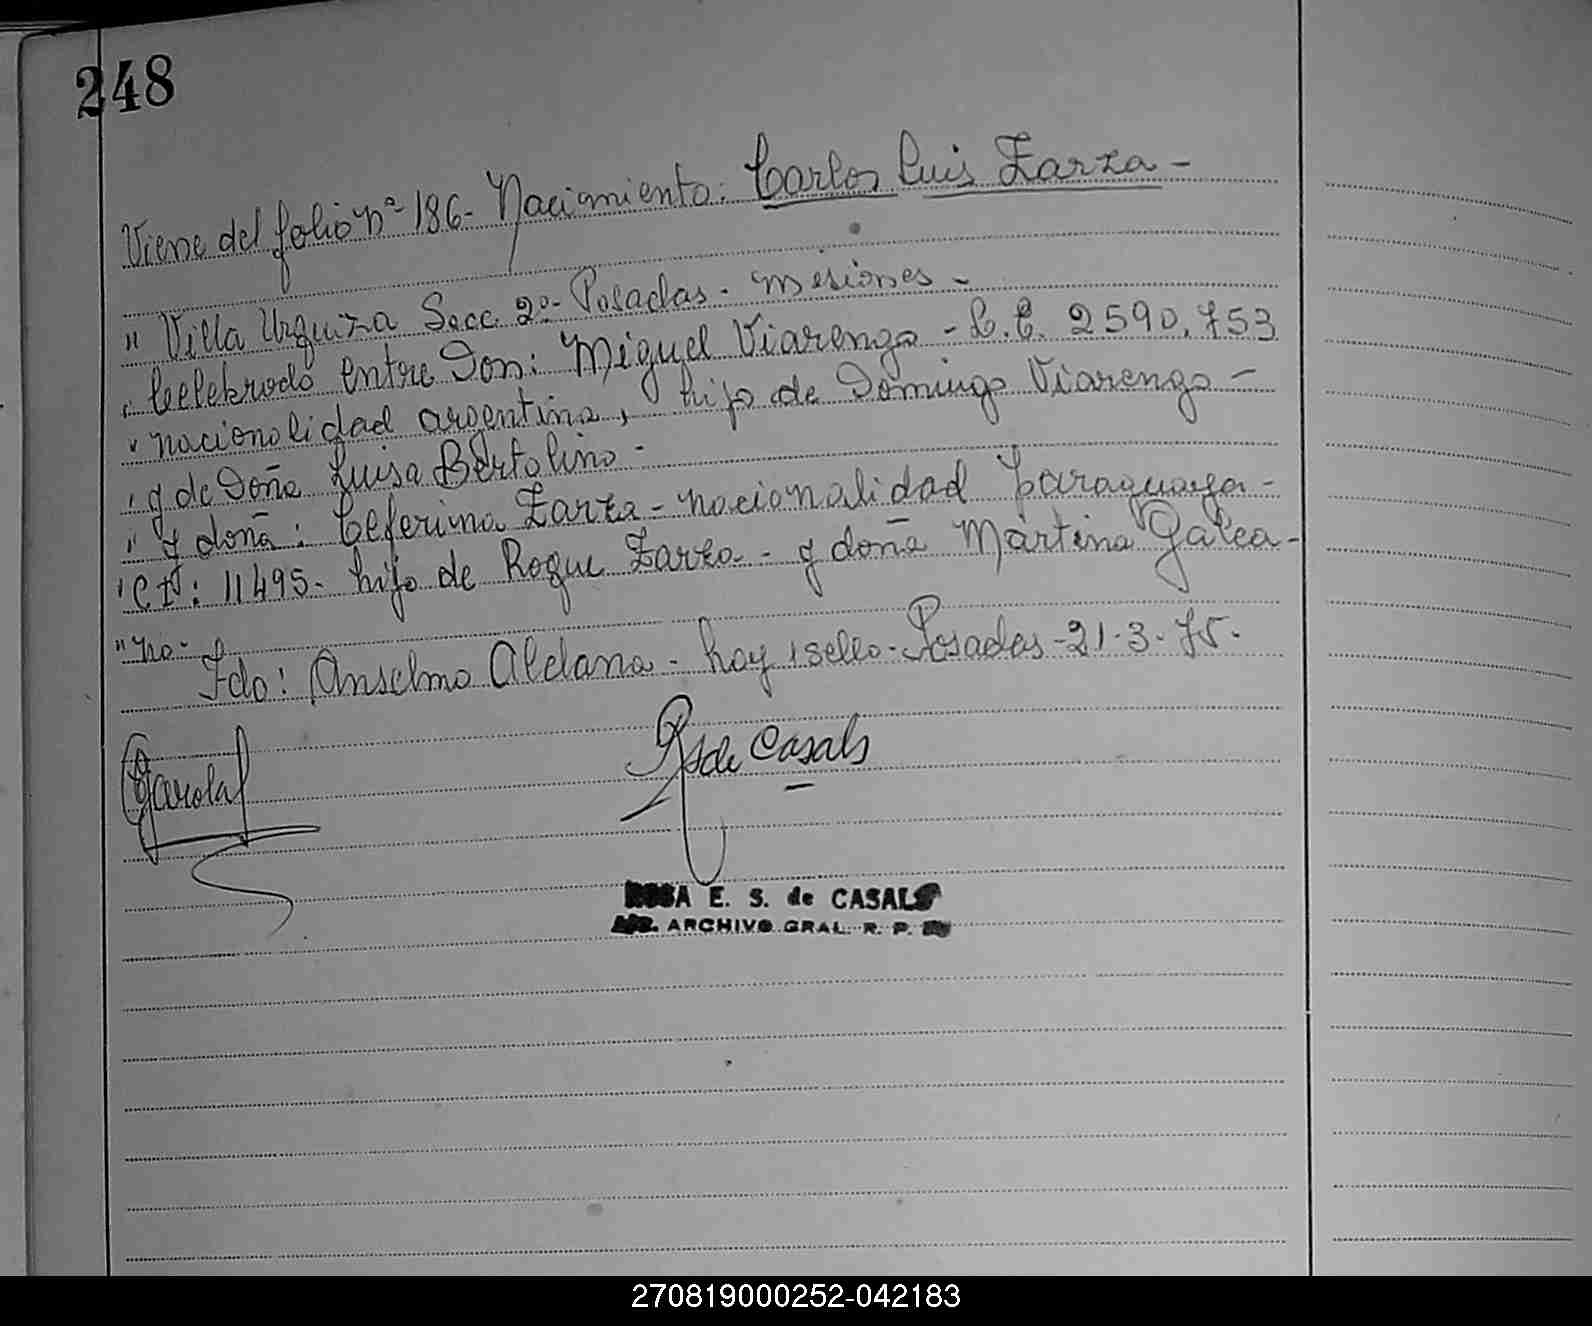 248
Viene del folio nº 186- Nacimiento: Carlos Luis Zarza -
" Villa Urquiza Secc. 2º- Posadas - Misiones -
" Celebrado entre Don: Miguel Viarengo - L.E. 2590.753
" nacionalidad argentina, hijo de Domingo Viarengo -
" y de Doña Luisa Bertolino -
" y doña: Ceferina Zarza - nacionalidad Paraguaya -
" CI: 11495- hijo de Roque Zarza - y doña Martina Galea-
" no-
Fdo: Anselmo Aldana - hay 1 sello - Posadas - 21-3-75-
de Casals
ROSA E. S. de CASALS
ARCHIVO GRAL. R. P.
270819000252-042183